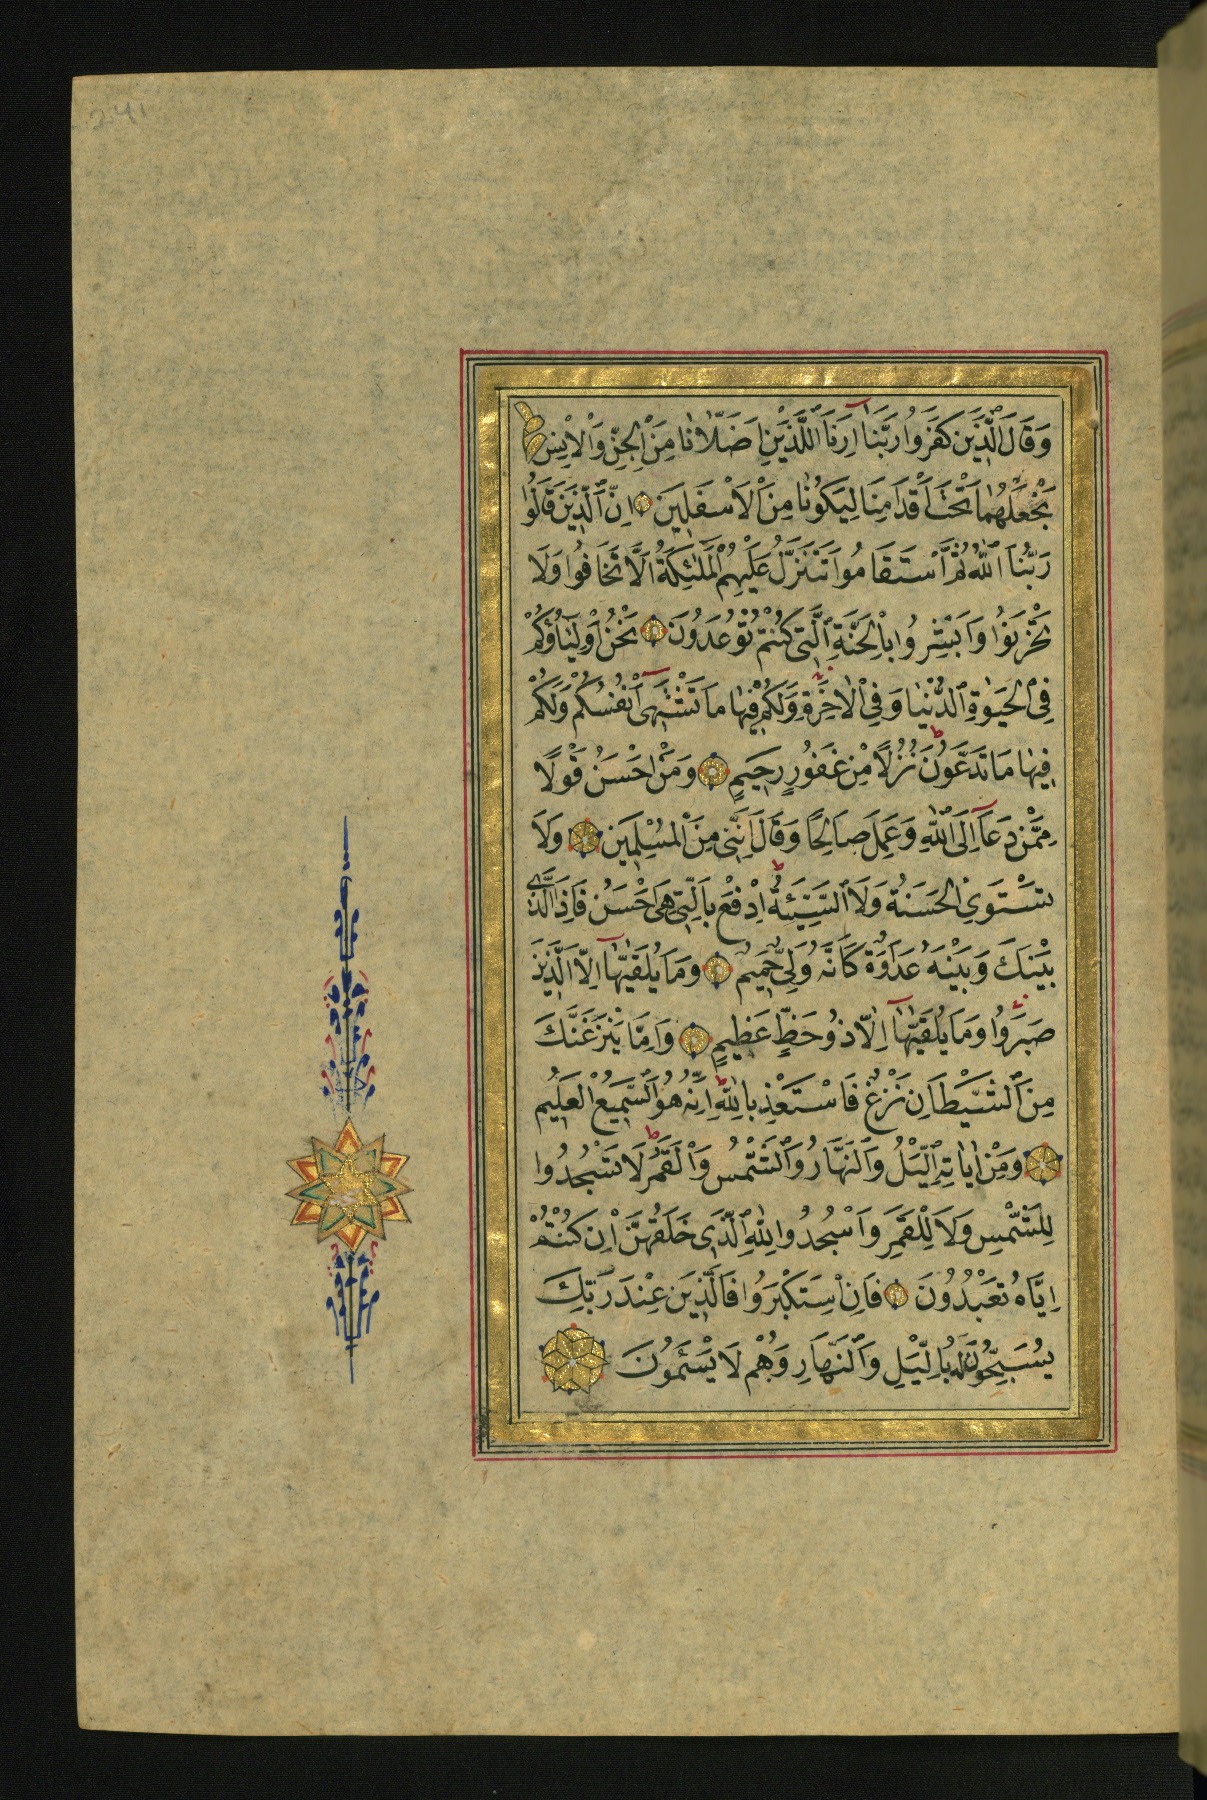 241
وَقَالَ الَّذِينَ كَفَرُوا رَبَّنَا اَرِنَا اللَّذَيْنِ اَضَلَّانَا مِنَ الْجِنِّ وَالْاِنْسِ
نَجْعَلْهُمَا تَحْتَ اَقْدَامِنَا لِيَكُونَا مِنَ الْاَسْفَلِينَ اِنَّ الَّذِينَ قَالُوا
رَبُّنَا اللّٰهُ ثُمَّ اسْتَقَامُوا تَتَنَزَّلُ عَلَيْهِمُ الْمَلٰئِكَةُ اَلَّا تَخَافُوا وَلَا
تَحْزَنُوا وَاَبْشِرُوا بِالْجَنَّةِ الَّتِى كُنْتُمْ تُوعَدُونَ نَحْنُ اَوْلِيَاؤُكُمْ
فِى الْحَيٰوةِ الدُّنْيَا وَفِى الْاٰخِرَةِ وَلَكُمْ فِيهَا مَا تَشْتَهِى اَنْفُسُكُمْ وَلَكُمْ
فِيهَا مَا تَدَّعُونَ نُزُلًا مِنْ غَفُورٍ رَحِيمٍ وَمَنْ اَحْسَنُ قَوْلًا
مِمَّنْ دَعَا اِلَى اللّٰهِ وَعَمِلَ صَالِحًا وَقَالَ اِنَّنِى مِنَ الْمُسْلِمِينَ وَلَا
تَسْتَوِى الْحَسَنَةُ وَلَا السَّيِّئَةُ اِدْفَعْ بِالَّتِى هِىَ اَحْسَنُ فَاِذَا الَّذِى
بَيْنَكَ وَبَيْنَهُ عَدَاوَةٌ كَاَنَّهُ وَلِىٌّ حَمِيمٌ وَمَا يُلَقّٰيهَا اِلَّا الَّذِينَ
صَبَرُوا وَمَا يُلَقّٰيهَا اِلَّا ذُو حَظٍّ عَظِيمٍ وَاِمَّا يَنْزَغَنَّكَ
مِنَ الشَّيْطَانِ نَزْغٌ فَاسْتَعِذْ بِاللّٰهِ اِنَّهُ هُوَ السَّمِيعُ الْعَلِيمُ
وَمِنْ اٰيَاتِهِ الَّيْلُ وَالنَّهَارُ وَالشَّمْسُ وَالْقَمَرُ لَا تَسْجُدُوا
لِلشَّمْسِ وَلَا لِلْقَمَرِ وَاسْجُدُوا لِلّٰهِ الَّذِى خَلَقَهُنَّ اِنْ كُنْتُمْ
اِيَّاهُ تَعْبُدُونَ فَاِنِ اسْتَكْبَرُوا فَالَّذِينَ عِنْدَ رَبِّكَ
يُسَبِّحُونَ لَهُ بِالَّيْلِ وَالنَّهَارِ وَهُمْ لَا يَسْـَٔمُونَ